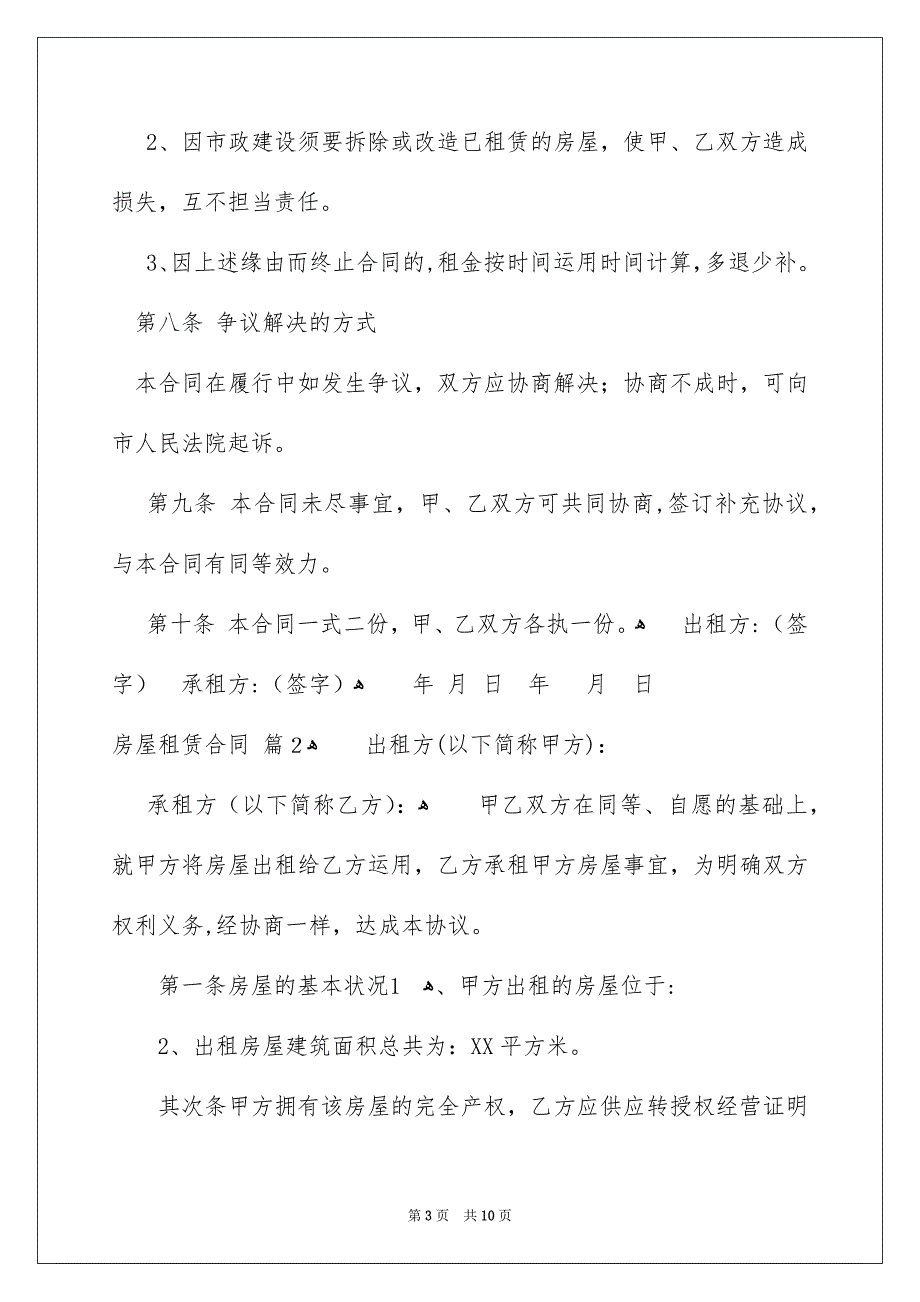 2、因市政建设须要拆除或改造已租赁的房屋，使甲、乙双方造成
损失，互不担当责任。
3、因上述缘由而终止合同的,租金按时间运用时间计算,多退少补。
第八条 争议解决的方式
本合同在履行中如发生争议，双方应协商解决；协商不成时，可向
市人民法院起诉。
第九条 本合同未尽事宜，甲、乙双方可共同协商,签订补充协议，
与本合同有同等效力。
第十条 本合同一式二份，甲、乙双方各执一份。ﻫ 出租方:（签
字） 承租方:（签字）ﻫ 年 月 日 年 月 日
房屋租赁合同 篇2ﻫ 出租方(以下简称甲方)：
承租方（以下简称乙方）：ﻫ 甲乙双方在同等、自愿的基础上，
就甲方将房屋出租给乙方运用，乙方承租甲方房屋事宜，为明确双方
权利义务,经协商一样，达成本协议。
第一条房屋的基本状况1ﻫ、甲方出租的房屋位于:
2、出租房屋建筑面积总共为：XX平方米。
其次条甲方拥有该房屋的完全产权，乙方应供应转授权经营证明
第 3 页 共 10 页